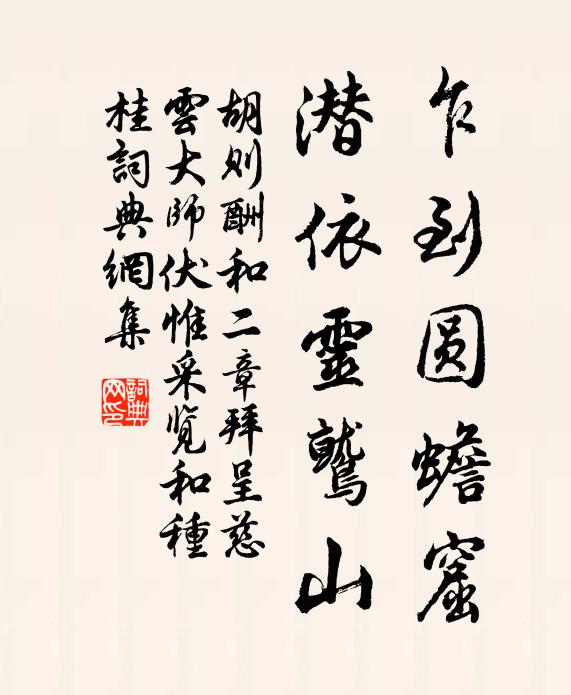 乍到圆蟾窟
潜依靈鹫山
胡则酬和二章拜呈慈
雲大师伏惟采览和種
桂詞典網集
詞典
网印